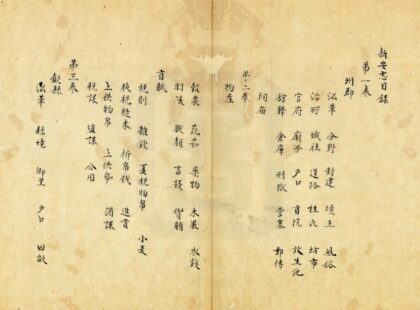 新安志目録
第一卷
州郡
沿革 分野 封建 境土 風俗
治所 城社 道路 姓氏 坊市
官府 廟學 戶口 貢院 放生池
館驛 倉庫 刑獄 營寨 郵傳
祠廟
第二卷
物産
穀粟 蔬茹 藥物 木果 水族
羽族 獸類 畜擾 貨賄
貢賦
税則 雜錢 夏税物帛 小麦
秋税糙米 折帛錢 進貢
上供物帛 上供紙 酒課
税課 鹽課 公用
第三卷
歙縣
沿革 縣境 鄉里 戶口 田畝